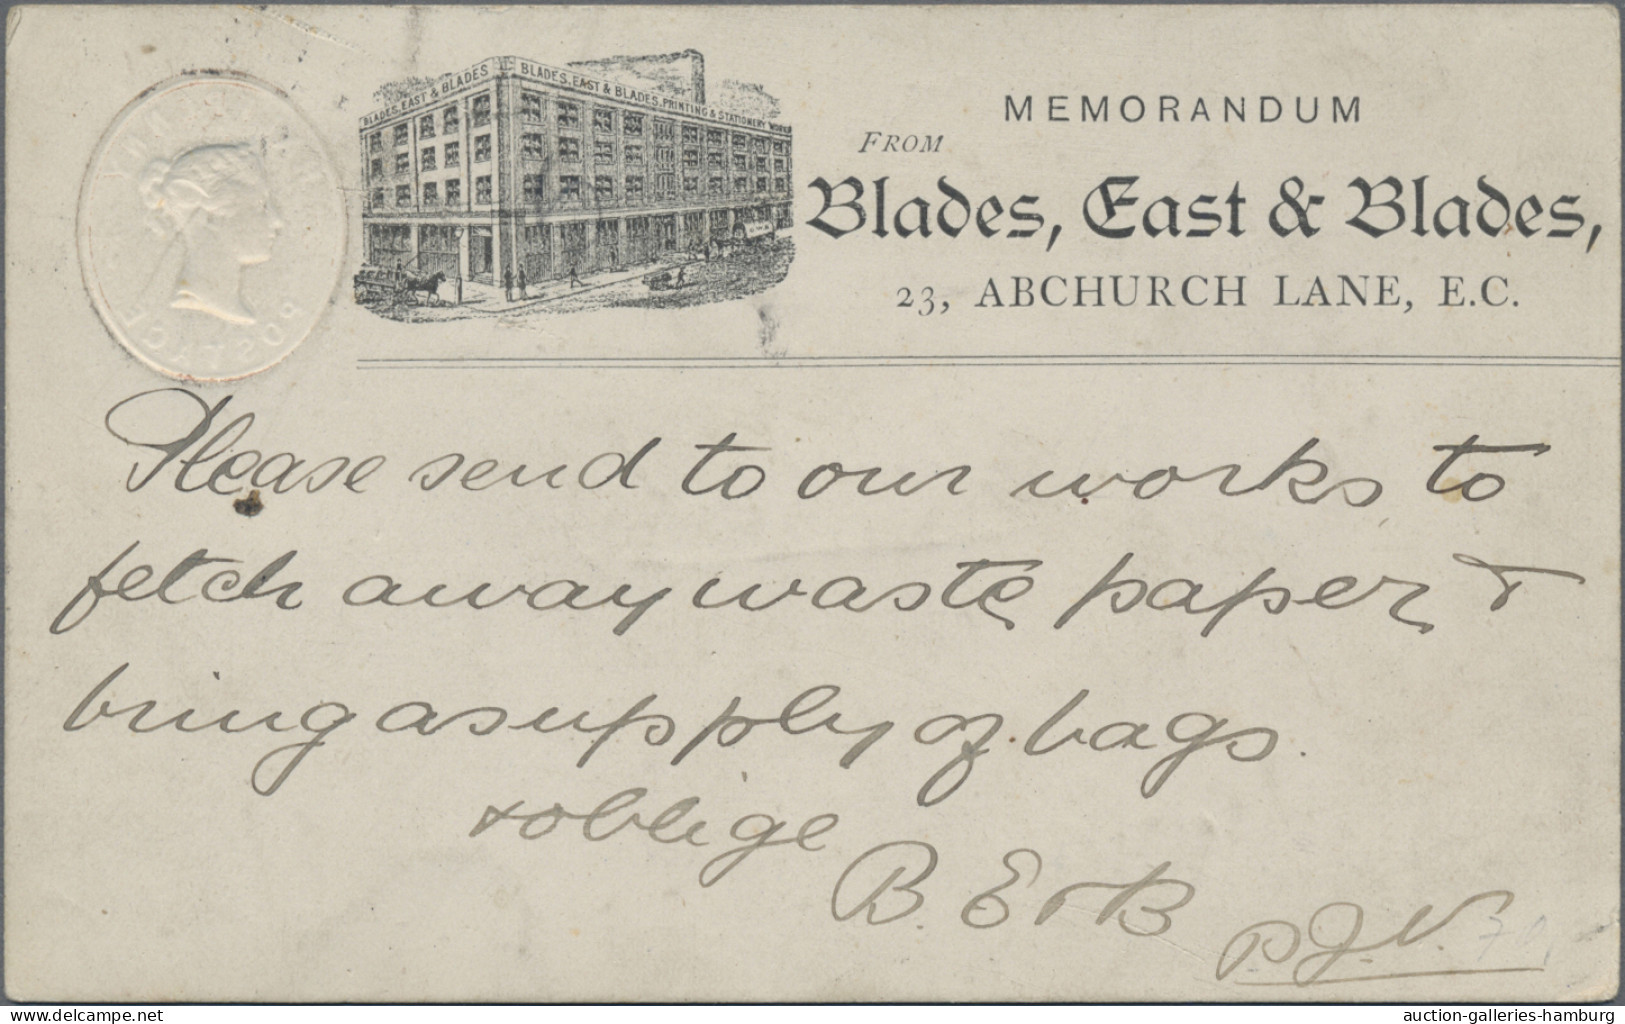 BLADES, EAST & BLADES
BLADES, EAST & BLADES, PRINTING & STATIONERY WORKS
MEMORANDUM
FROM
Blades, East & Blades,
23, ABCHURCH LANE, E.C.
Please send to our works to
fetch away waste paper &
bring a supply of bags.
& oblige
B. E & B
P. J. V.
delcampe.net
auction-galleries-hamburg